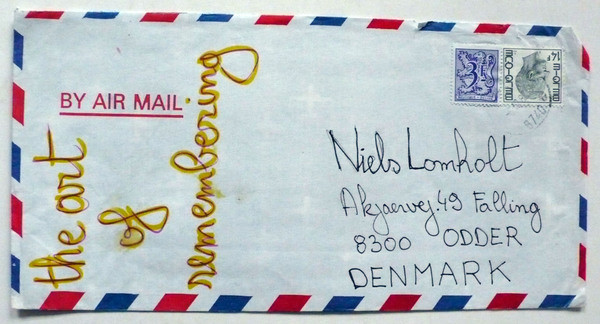 BY AIR MAIL
the art
of
remembering
3F
14F
Niels Lomholt
Akjaervej.49 Falling
8300 ODDER
DENMARK